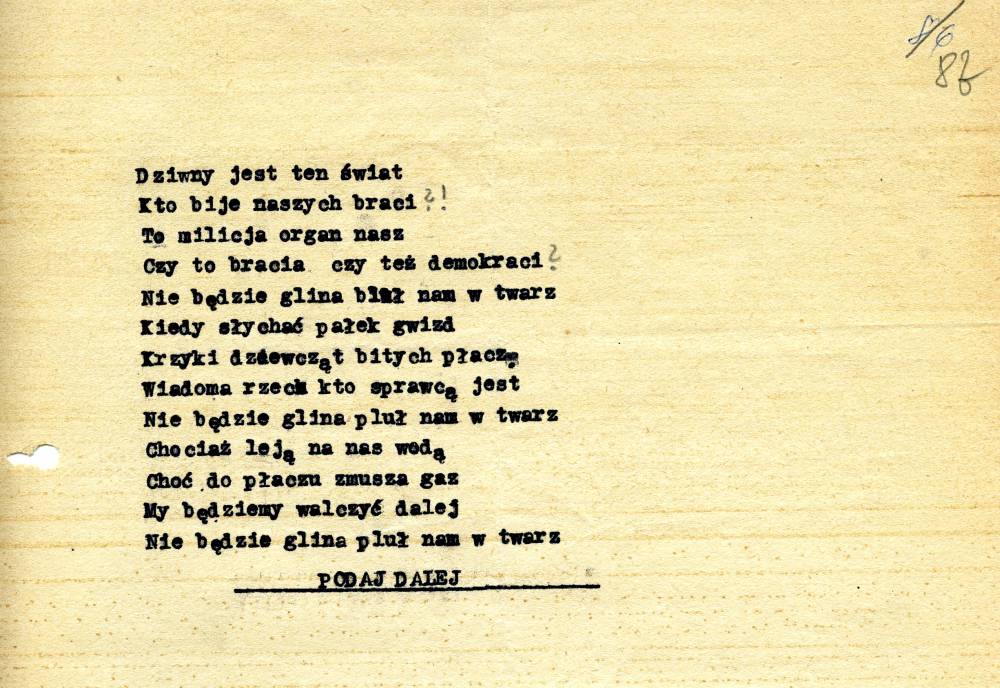 86
87
Dziwny jest ten świat
Kto bije naszych braci?!
To milicja organ nasz
Czy to bracia czy też demokraci?
Nie będzie glina bił nam w twarz
Kiedy słychać pałek gwizd
Krzyki dziewcząt bitych płacz
Wiadoma rzech kto sprawcą jest
Nie będzie glina pluł nam w twarz
Chociaż leją na nas wodą
Choć do płaczu zmusza gaz
My będziemy walczyć dalej
Nie będzie glina pluł nam w twarz
PODAJ DALEJ